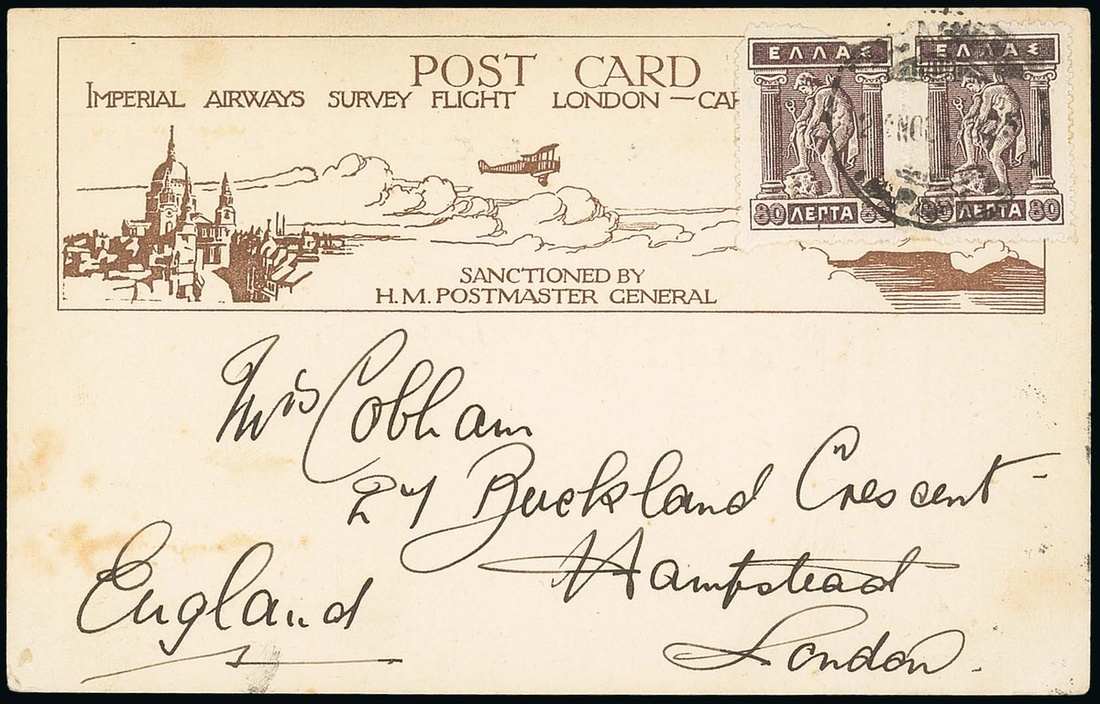 POST CARD
IMPERIAL AIRWAYS SURVEY FLIGHT LONDON — CAP
SANCTIONED BY
H.M. POSTMASTER GENERAL
ΕΛΛΑΣ
80 ΛΕΠΤΑ 80
ΕΛΛΑΣ
80 ΛΕΠΤΑ 80
NOE
Mrs Cobham
27 Buckland Crescent
Hampstead
London.
England